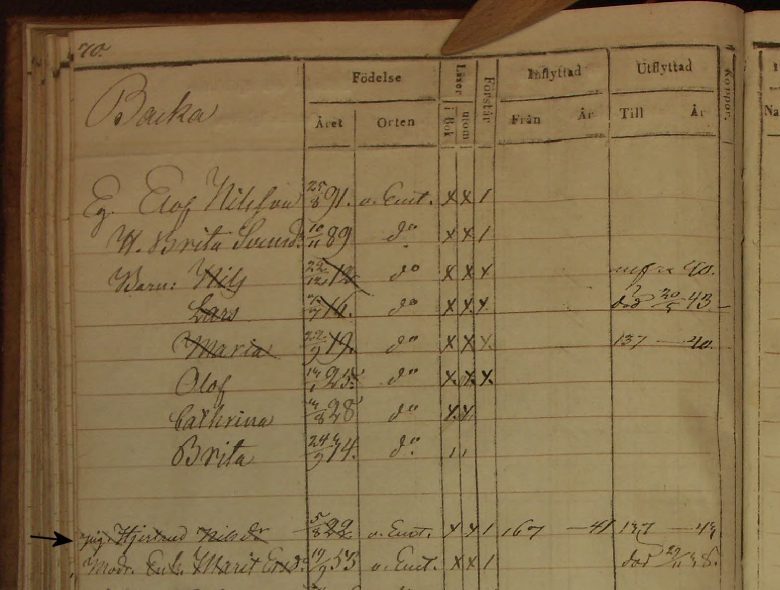 70.
Backa
Födelse Läser Förstår Inflyttad Utflyttad Koppor.
Året Orten i Bok utom Från År Till År
Eg. Elof Nilsson 25/8 91. ö. Emt. x x 1
H. Brita Svensd: 10/11 89 do x x 1
Barn: Nils 12. do x x x 40.
Lars 16. do x x x död 20/5 43
Maria 19. do x x x 137 — 40.
Olof 25 do x x x
Cathrina 28 do x x
Brita 14. do
pig. Hjertrud Nilsdr 5/8 22 ö. Emt. x x 1 167 — 41 137 — 43
Modr. Enk. Marit Ersd: 19/9 53 ö. Emt. x x 1 död 38.